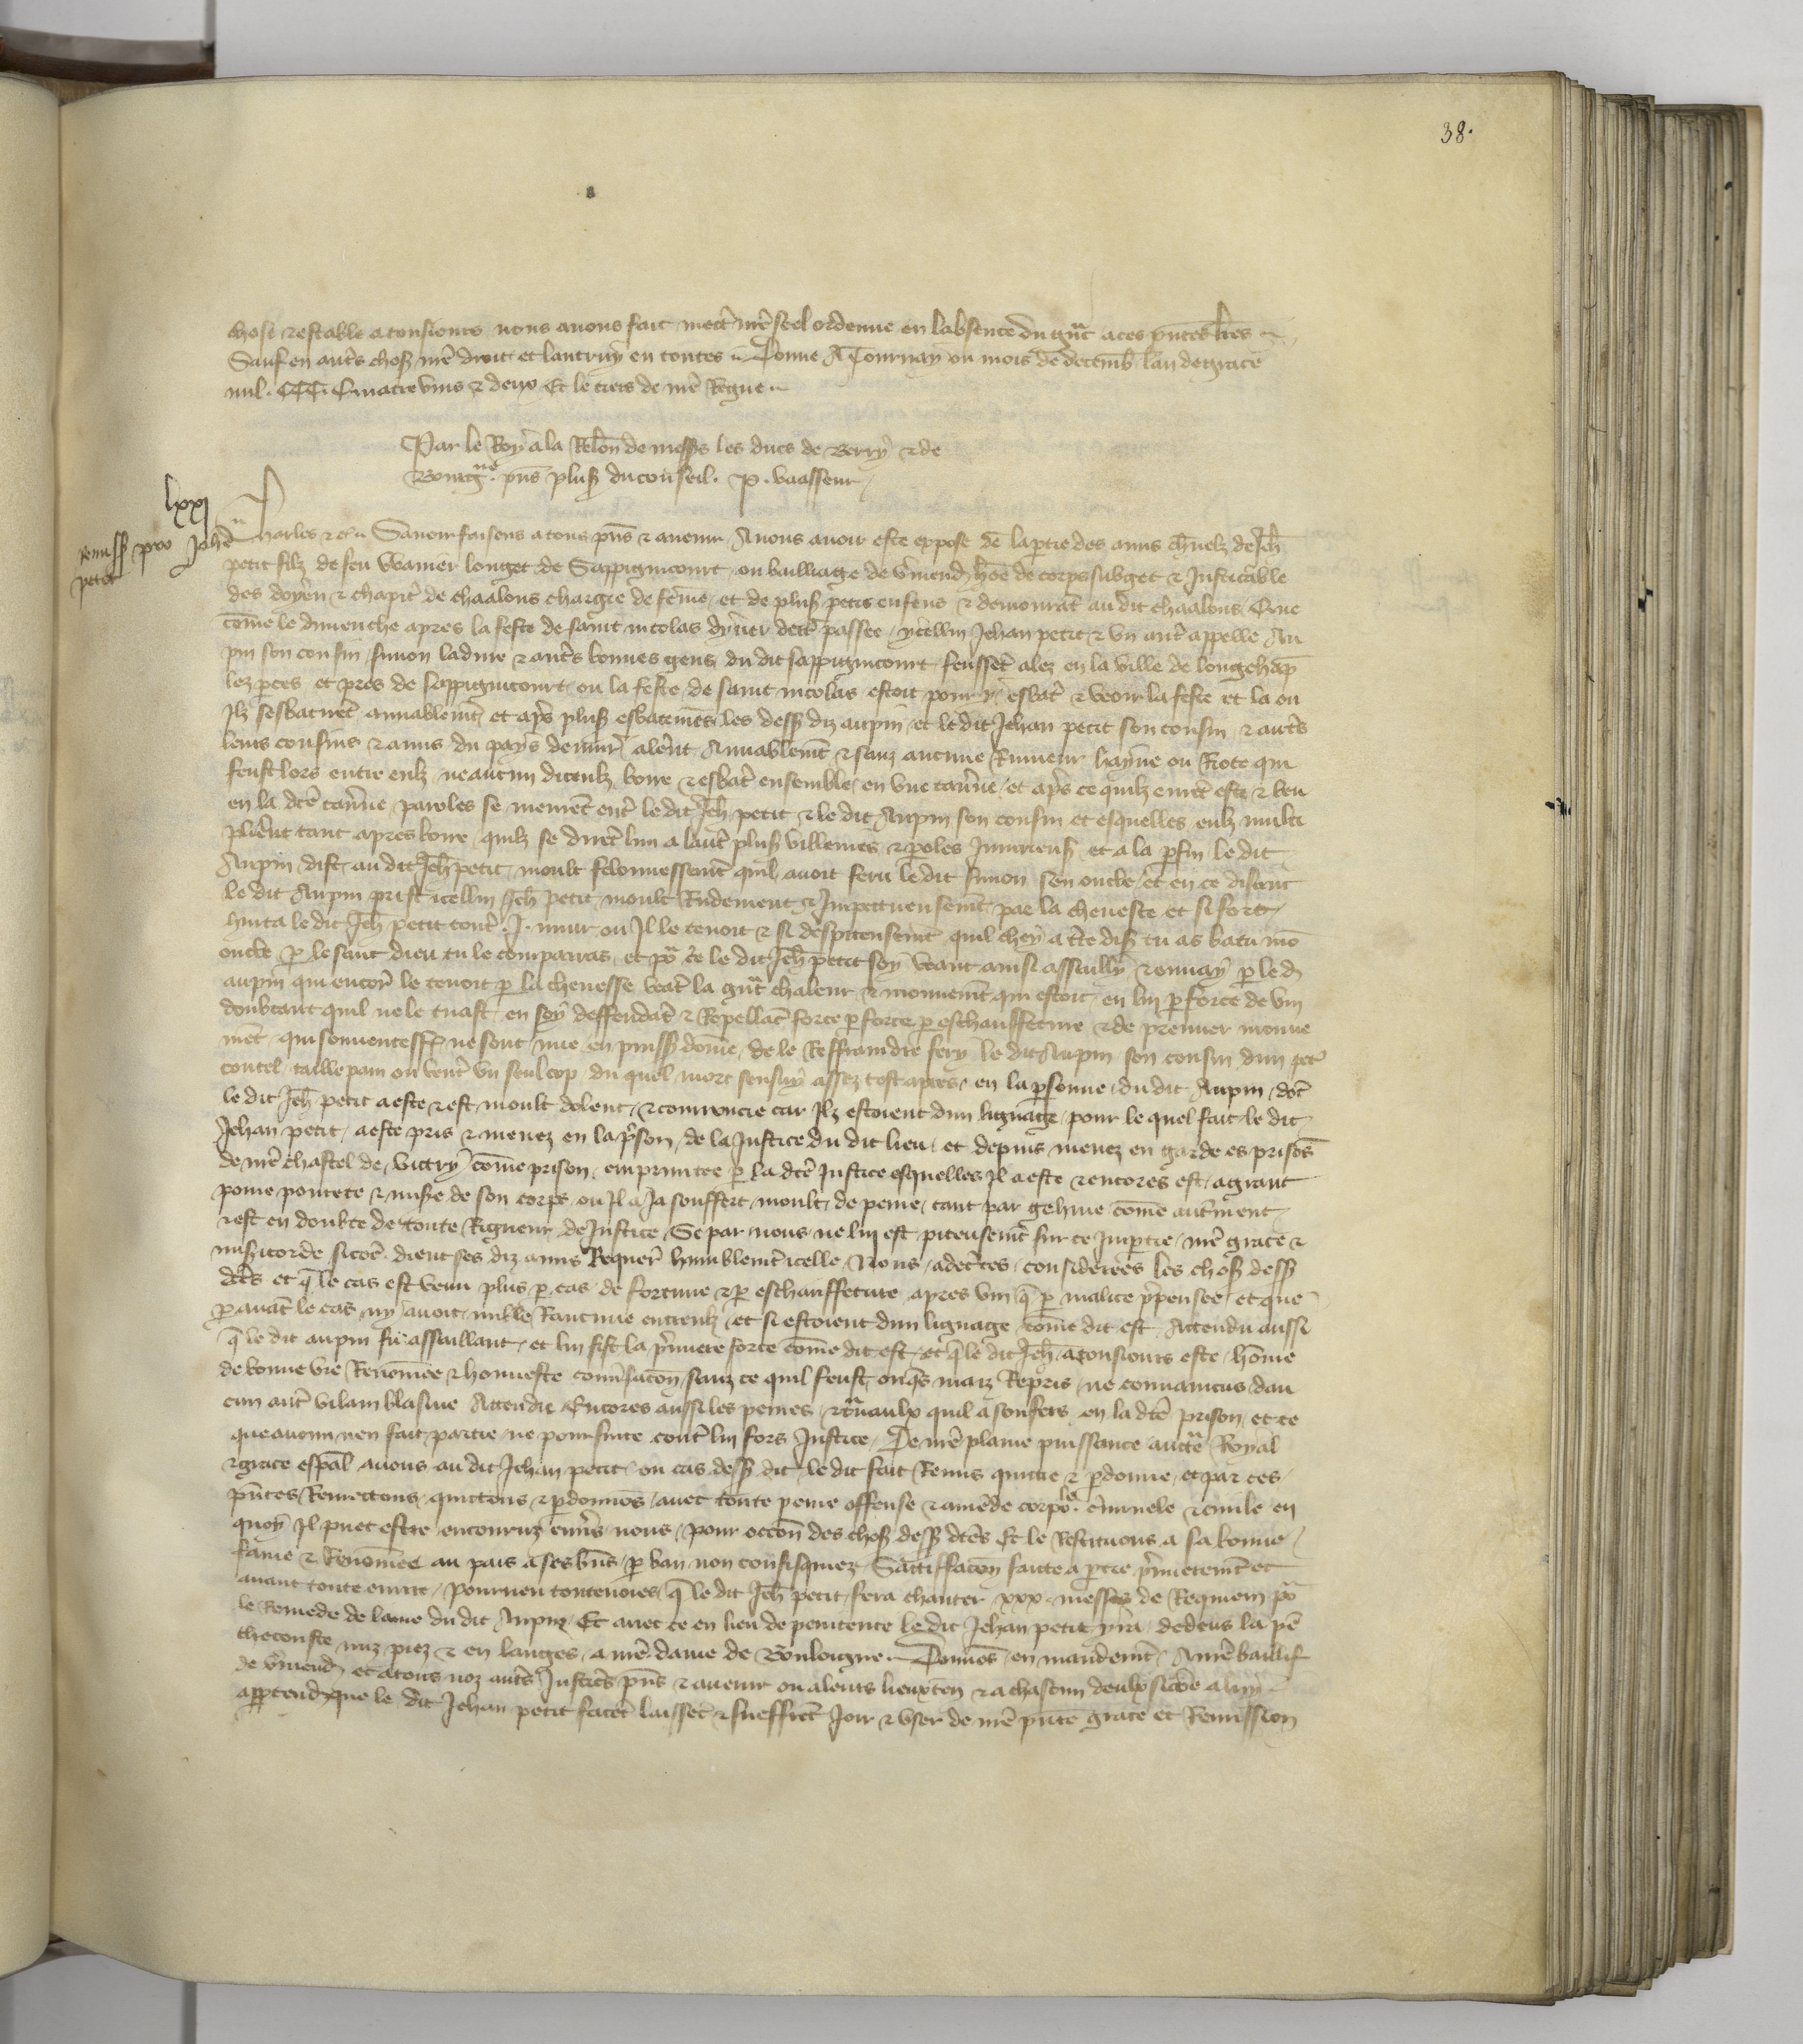 38.
chose et estable a tousiours nous avons fait mectre nre seel ordenne en labsence du grant a ces pntes lres
Sauf en autres choses nre droit et lautruy en toutes Donne A Tournay ou mois de decembre lan de grace
mil. CCC. Quatre vins et deux Et le tiers de nre Regne
Par le Roy a la Relon de mess les ducs de Berry et de
Bourgne pns plus du conseil. P. vaasseur
lxxi
remiss pro Johe
petit
Charles etc Savoir faisons a tous pns et avenir Avons avoir este expose de la partie des amis charnelz de Jeh
petit filz de feu longet de Sappignicourt ou bailliage de vmend home de corps subget et Justicable
des doyen et chapitre de chaalons chargie de feme et de plus petis enfens et demourant au dit chaalons Que
come le dimenche apres la feste de saint nicolas dyver dert passee ycellui Jehan petit et un autre appelle Au
pin son cousin Simon ladvie et autres bonnes gens du dit sappignicourt feussent alez en la ville de longchap
lez perres et pres de sappignicourt ou la feste de saint nicolas estoit pour y esbatre et veoir la feste et la ou
Ilz sesbatirent amiablement et apres plus esbatemens les dess diz aupin et le dit Jehan petit son cousin et autres
leurs cousins et amis du pays denvir alerent Amiablement et sanz aucune Rumeur hayne ou Riote qui
feust lors entre eulz ne aucun diceulz boire et esbatre ensemble en une taverne et apres ce quilz eurent este et beu
en la dte taverne paroles se meurent entre le dit Jeh petit et le dit Aupin son cousin et esquelles eulz multi
plierent tant apres boire quilz se dirent lun a lautre plus villenies et paroles Iniurieuses et a la parfin le dit
Aupin dist au dit Jeh petit moult felonnessement quil avoit feru le dit Simon son oncle et en ce disant
le dit Aupin prist icellui Jeh petit moult Rudement et Impetueusement par la chevesce et si fort
hurta le dit Jeh petit contre .I. mur ou Il le tenoit et si despiteusement quil chey a terre dis tu as batu mo
oncle par le sanc dieu tu le comparras et pour ce le dit Jeh petit soy veant ainsi assailly et envay par le d
aupin qui encores le tenoit par la chevesse veant la grant chaleur et mouvement qui estoit en lui par force de vin
doubtant quil ne le tuast en soy deffendant et Repellant force par force par eschauffeture et de premier mouve
ment qui souventesfs ne sont mie en puiss dome de le Reffraindre fery le dit Aupin son cousin dun pet
coutel taille pain ou ventre un seul cop du quel mort sensuy assez tost apres en la personne du dit Aupin dont
le dit Jeh petit a este et est moult dolent et courroucie car Ilz estoient dun lignage pour le quel fait le dit
Jehan petit a este pris et menez en la prison de la Justice du dit lieu et depuis menez en garde es prisons
de nre chastel de vitry come prison empruntee par la dte Justice esquelles Il a este et encores est a grant
povre povrete et misere de son corps ou Il a Ja souffert moult de peine tant par gehine come autrement
et est en doubte de toute Rigueur de Justice Se par nous ne lui est piteusement sur ce Impartie nre grace et
misericorde sicome dient ses diz amis Requerans humblement icelle Nous adecertes considerees les choses dess
dtes et que le cas est venu plus par cas de fortune et par eschauffeture apres vin que par malice prepensee et que
par avant le cas ny avoit nulle Rancune entreulz et si estoient dun lignage come dit est Attendu aussi
que le dit aupin fu assaillant et lui fist la premiere force come dit est et que le dit Jeh a tousiours este home
de bonne vie Renomee et honneste conversacon sanz ce quil feust onques maiz Repris ne convaincus dau
cun autre vilain blasme Attendu Encores aussi les peines et travaulx quil a soufers en la dte prison et ce
que aucun nen fait partie ne poursuite contre lui fors Justice De nre plaine puissance auctte Royal
et grace espal avons au dit Jehan petit ou cas dess dit le dit fait Remis quittie et pardonne et par ces
pntes Remettons quittons et pardonnons avec toute peine offense et amende corporle criminele et civile en
quoy Il puet estre encouruz envers nous pour occon des choses dess dtes Et le Restituons a sa bonne
fame et Renomee au pais a ses biens par ban non confisquiez Sattiffacon faitte a partie premierement et
avant toute euvre pourveu toutevoies que le dit Jeh petit fera chanter xxx messes de Requiem pour
le Remede de lame du dit Aupin Et avec ce en lieu de penitence le dit Jehan petit yra dedens la pe
thecouste nuz piez et en langes a nre dame de Bouloigne Donnons en mandement A nre baillif
de vmend et a tous noz autres Justiciers pns et avenir ou a leurs lieuxten et a chascun deulx sicome a luy
appartendra que le dit Jehan petit facent laissent et sueffrent Joir et user de nre pnte grace et Remission